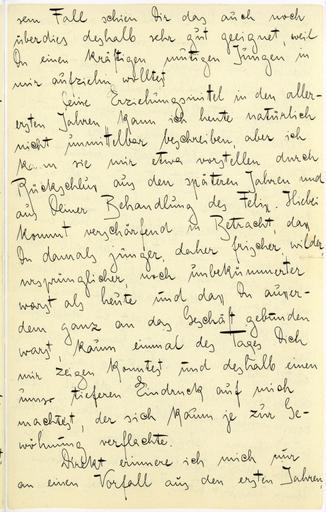 sem Fall schien Dir das auch noch
überdies deshalb sehr gut geeignet, weil
Du einen kräftigen mutigen Jungen in
mir aufziehn wolltest
Deine Erziehungsmittel in den aller-
ersten Jahren kann ich heute natürlich
nicht unmittelbar beschreiben, aber ich
kann sie mir etwa vorstellen durch
Rückschluss aus den späteren Jahren und
aus Deiner Behandlung des Felix. Hiebei
kommt verschärfend in Betracht, dass
Du damals jünger, daher frischer, wilder,
ursprünglicher, noch unbekümmerter
warst als heute und dass Du ausser-
dem ganz an das Geschäft gebunden
warst, kaum einmal des Tages Dich
mir zeigen konntest und deshalb einen
umso tieferen Eindruck auf mich
machtest, der sich kaum je zur Ge-
wöhnung verflachte.
Direkt erinnere ich mich nur
an einen Vorfall aus den ersten Jahren,